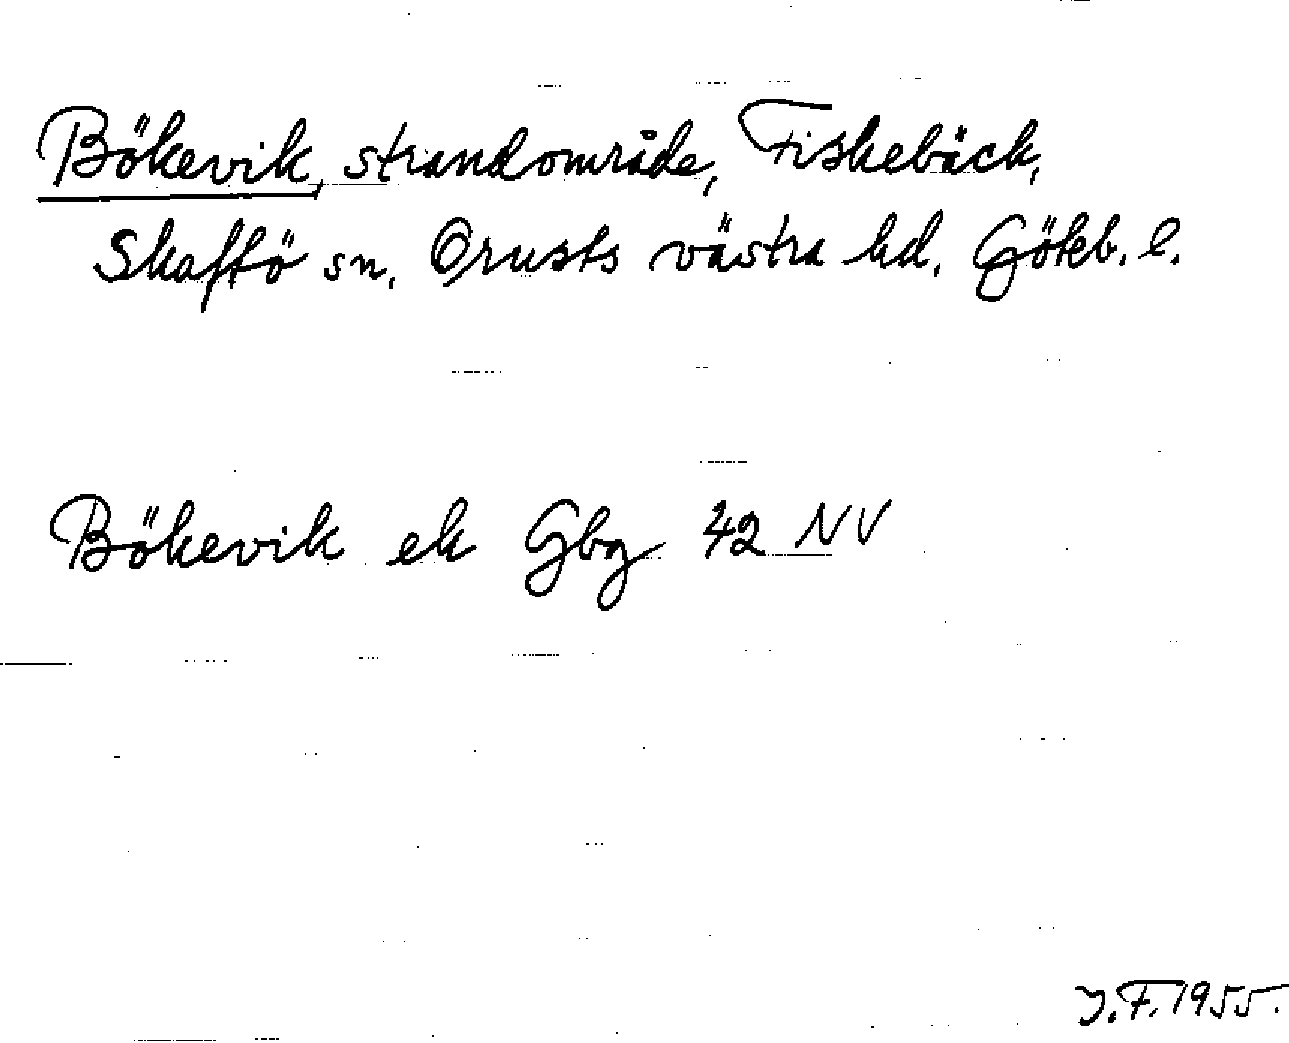 Bökevik, strandområde, Fiskebäck,
Skaftö sn. Orusts västra hd. Göteb. l.
Bökevik ek Gbg 42 NV
J.F. 1955.